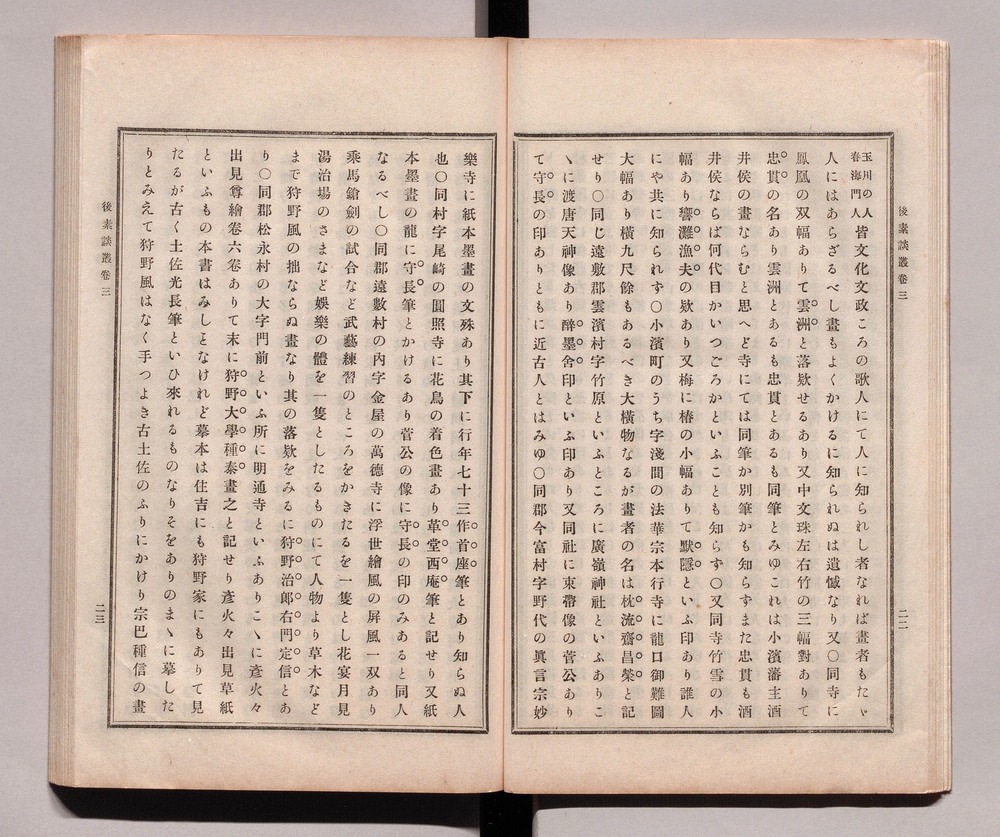 後素談叢卷三
玉川の人
春海門人
皆文化文政ころの歌人にて人に知られし者なれば畫者もたゞ
人にはあらざるべし畫もよくかけるに知られぬは遺憾なり又〇同寺に
鳳凰の双幅ありて雲洲と落欵せるあり又中文珠左右竹の三幅對ありて
忠貫の名あり雲洲とあるも忠貫とあるも同筆とみゆこれは小濱藩主酒
井侯の畫ならむと思へど寺にては同筆か別筆かも知らずまた忠貫も酒
井侯ならば何代目かいつごろかといふことも知らず〇又同寺竹雪の小
幅あり響灘漁夫の欵あり又梅に椿の小幅ありて默隱といふ印あり誰人
にや共に知られず〇小濱町のうち字淺間の法華宗本行寺に龍口御難圖
大幅あり橫九尺餘もあるべき大橫物なるが畫者の名は枕流齋昌榮と記
せり〇同じ遠敷郡雲濱村字竹原といふところに廣嶺神社といふありこ
ゝに渡唐天神像あり醉墨舍印といふ印あり又同社に束帶像の菅公あり
て守長の印ありともに近古人とはみゆ〇同郡今富村字野代の眞言宗妙
二二
樂寺に紙本墨畫の文殊あり其下に行年七十三作首座筆とあり知らぬ人
也〇同村字尾崎の圓照寺に花鳥の着色畫あり草堂西庵筆と記せり又紙
本墨畫の龍に守長筆とかけるあり菅公の像に守長の印のみあると同人
なるべし〇同郡遠敷村の內字金屋の萬德寺に浮世繪風の屏風一双あり
乘馬鎗劍の試合など武藝練習のところをかきたるを一隻とし花宴月見
湯治場のさまなど娛樂の體を一隻としたるものにて人物より草木など
まで狩野風の拙ならぬ畫なり其の落欵をみるに狩野治郞右門定信とあ
り〇同郡松永村の大字門前といふ所に明通寺といふありこゝに彥火々
出見尊繪卷六卷ありて末に狩野大學種泰畫之と記せり彥火々出見草紙
といふもの本書はみしことなけれど摹本は住吉にも狩野家にもありて見
たるが古く土佐光長筆といひ來れるものなりそをありのまゝに摹した
りとみえて狩野風はなく手つよき古土佐のふりにかけり宗巴種信の畫
後素談叢卷三
二三